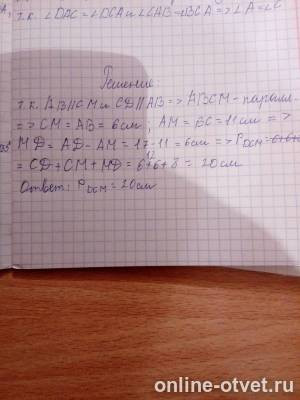 т.к. ∠DAC = ∠DCA и ∠CAB = ∠BCA => ∠A = ∠C
Решение:
т.к. AB||CM и CD||AB => ABCM - паралл-
=> CM = AB = 6см; AM = BC = 11см =>
MD = AD - AM = 17-11 = 6см => P DCM =
= CD + CM + MD = 6+6+8 = 20см
Ответ: P DCM = 20см
online-otvet.ru